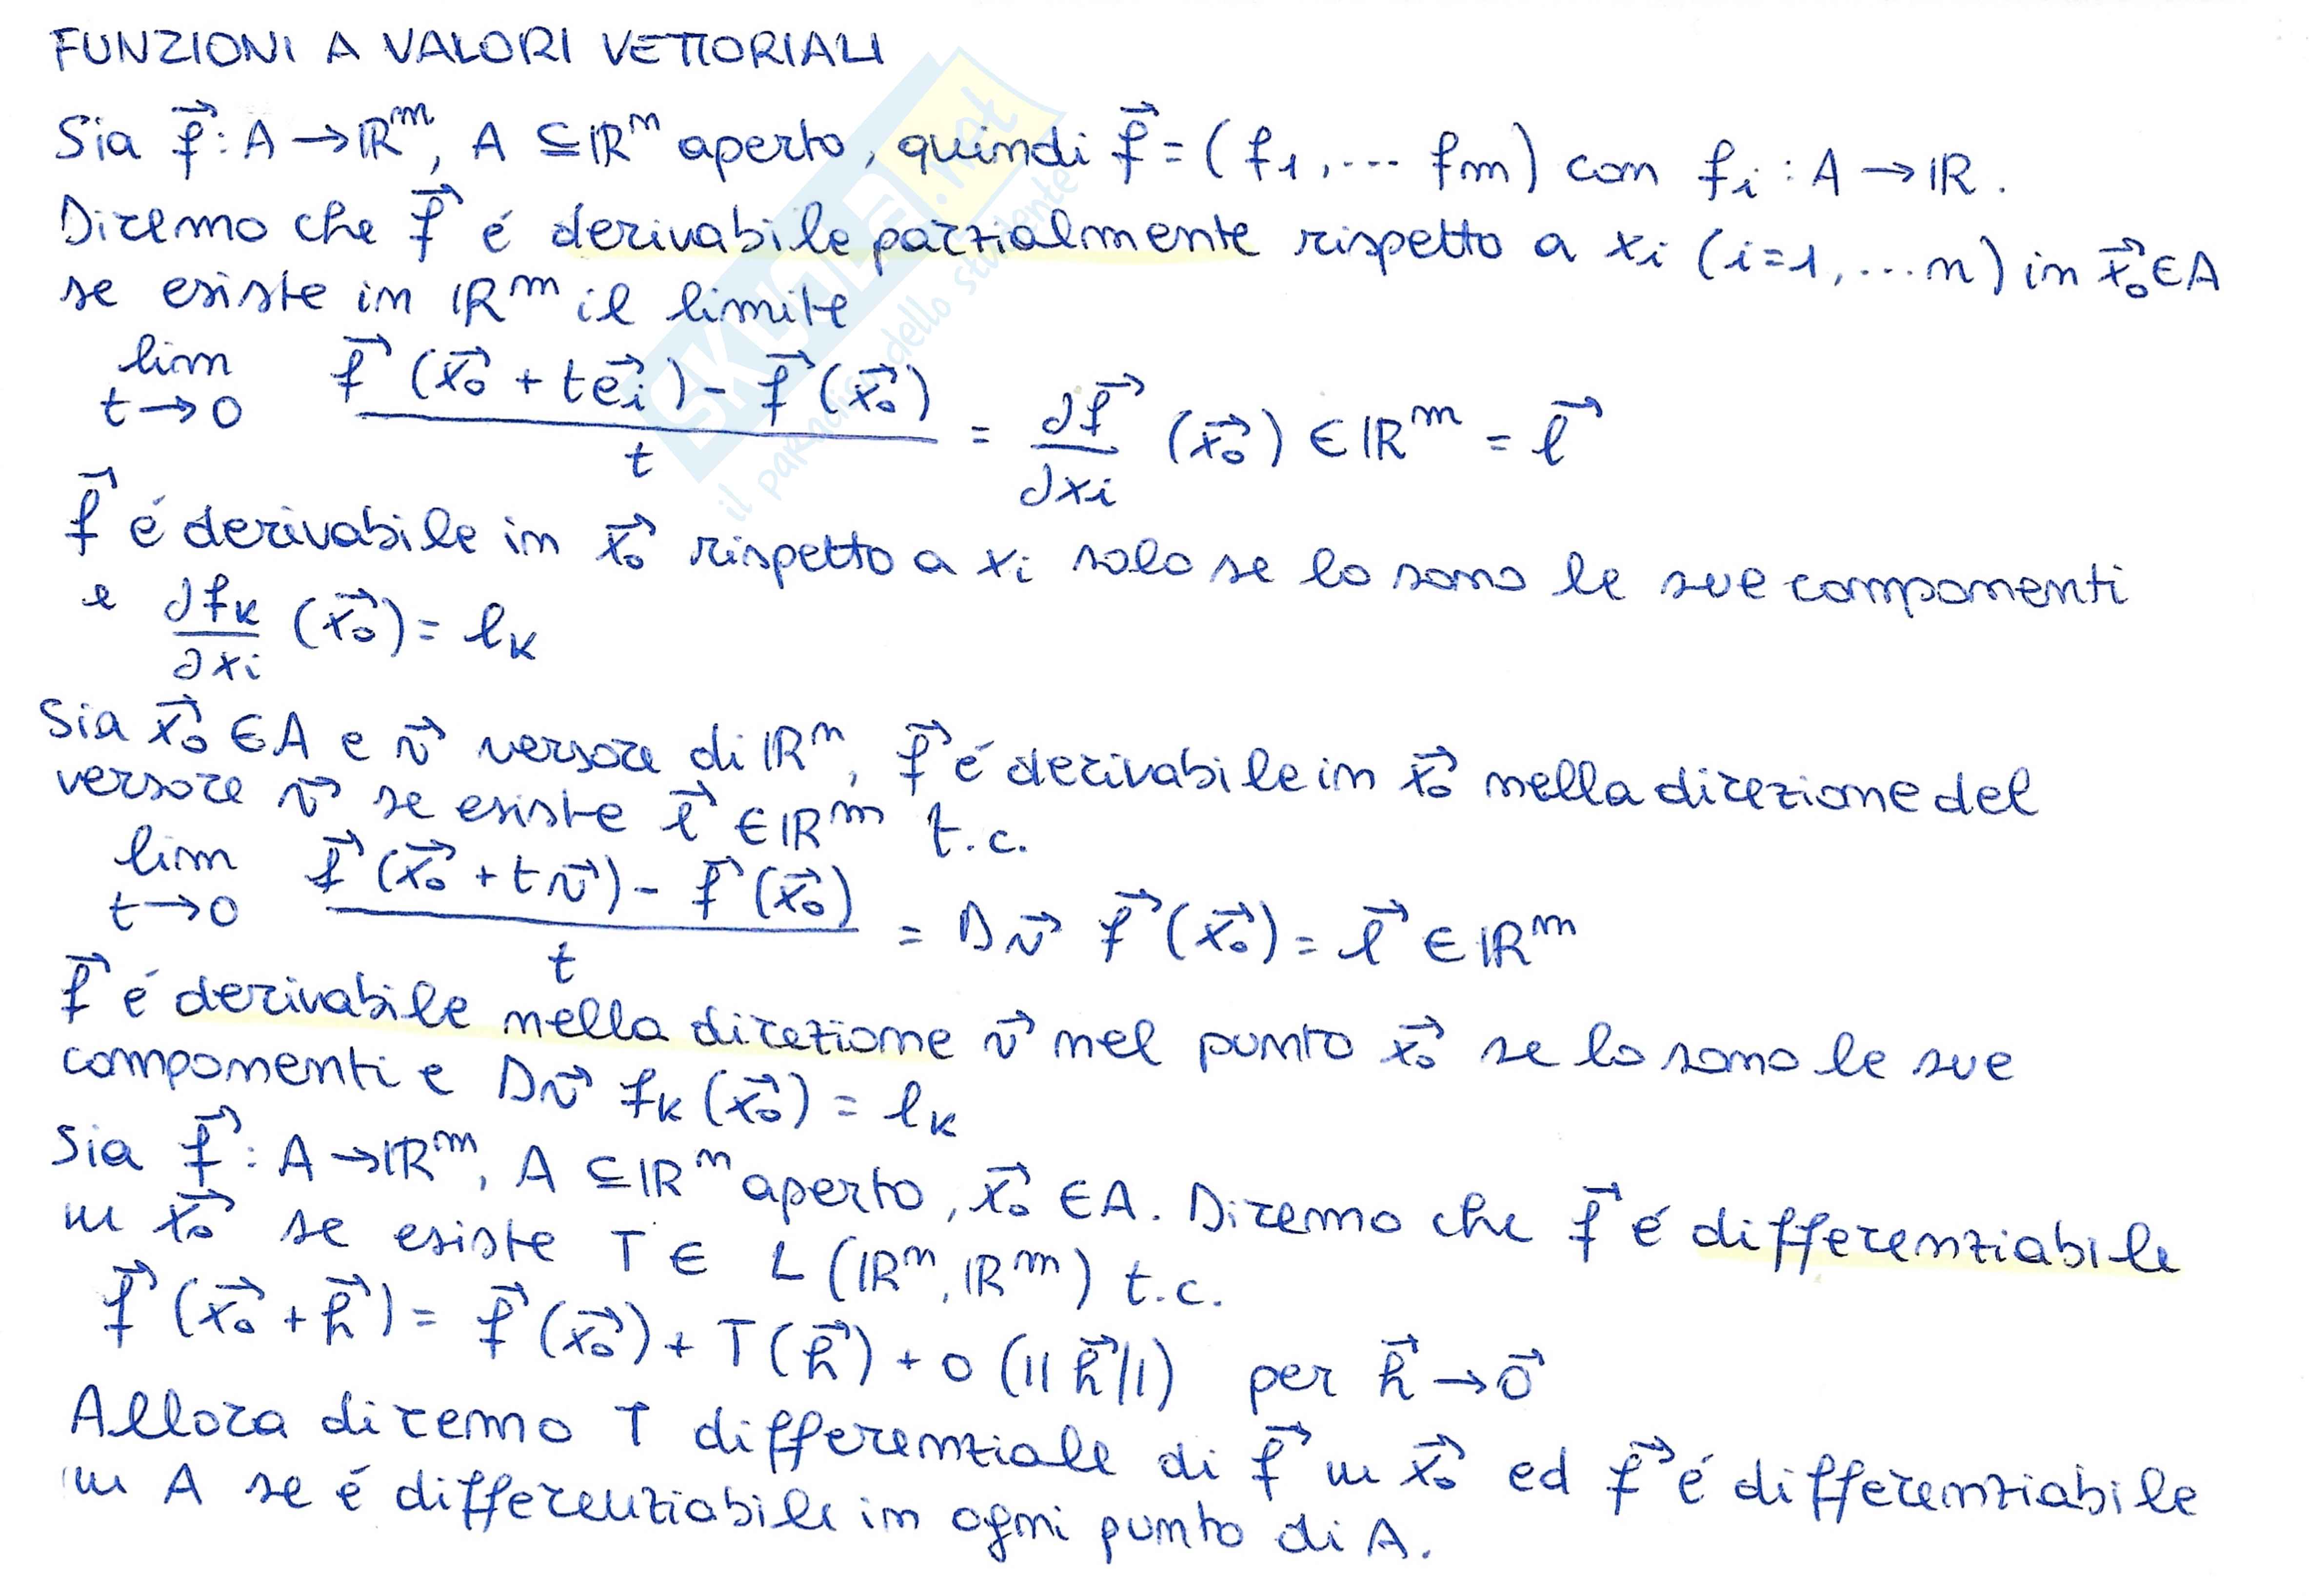 FUNZIONI A VALORI VETTORIALI
Sia f⃗: A → ℝᵐ, A ⊆ ℝⁿ aperto, quindi f⃗ = (f₁, ... fm) con fᵢ : A → ℝ.
Diremo che f⃗ é derivabile parzialmente rispetto a xᵢ (i=1, ... n) in x⃗₀ ∈ A
se esiste in ℝᵐ il limite
lim t→0 (f⃗(x⃗₀ + te⃗ᵢ) - f⃗(x⃗₀))/t = ∂f⃗/∂xᵢ (x⃗₀) ∈ ℝᵐ = l⃗
f⃗ é derivabile in x⃗₀ rispetto a xᵢ solo se lo sono le sue componenti
e ∂fₖ/∂xᵢ (x⃗₀) = lₖ
Sia x⃗₀ ∈ A e v⃗ versore di ℝⁿ, f⃗ é derivabile in x⃗₀ nella direzione del
versore v⃗ se esiste l⃗ ∈ ℝᵐ t.c.
lim t→0 (f⃗(x⃗₀ + tv⃗) - f⃗(x⃗₀))/t = Dv⃗ f⃗(x⃗₀) = l⃗ ∈ ℝᵐ
f⃗ é derivabile nella direzione v⃗ nel punto x⃗₀ se lo sono le sue
componenti e Dv⃗ fₖ(x⃗₀) = lₖ
Sia f⃗: A → ℝᵐ, A ⊆ ℝⁿ aperto, x⃗₀ ∈ A. Diremo che f⃗ é differenziabile
in x⃗₀ se esiste T ∈ L(ℝⁿ, ℝᵐ) t.c.
f⃗(x⃗₀ + h⃗) = f⃗(x⃗₀) + T(h⃗) + o(||h⃗||) per h⃗ → 0⃗
Allora diremo T differenziale di f⃗ in x⃗₀ ed f⃗ é differenziabile
in A se é differenziabile in ogni punto di A.
SKUOLA.net
il paradiso dello studente